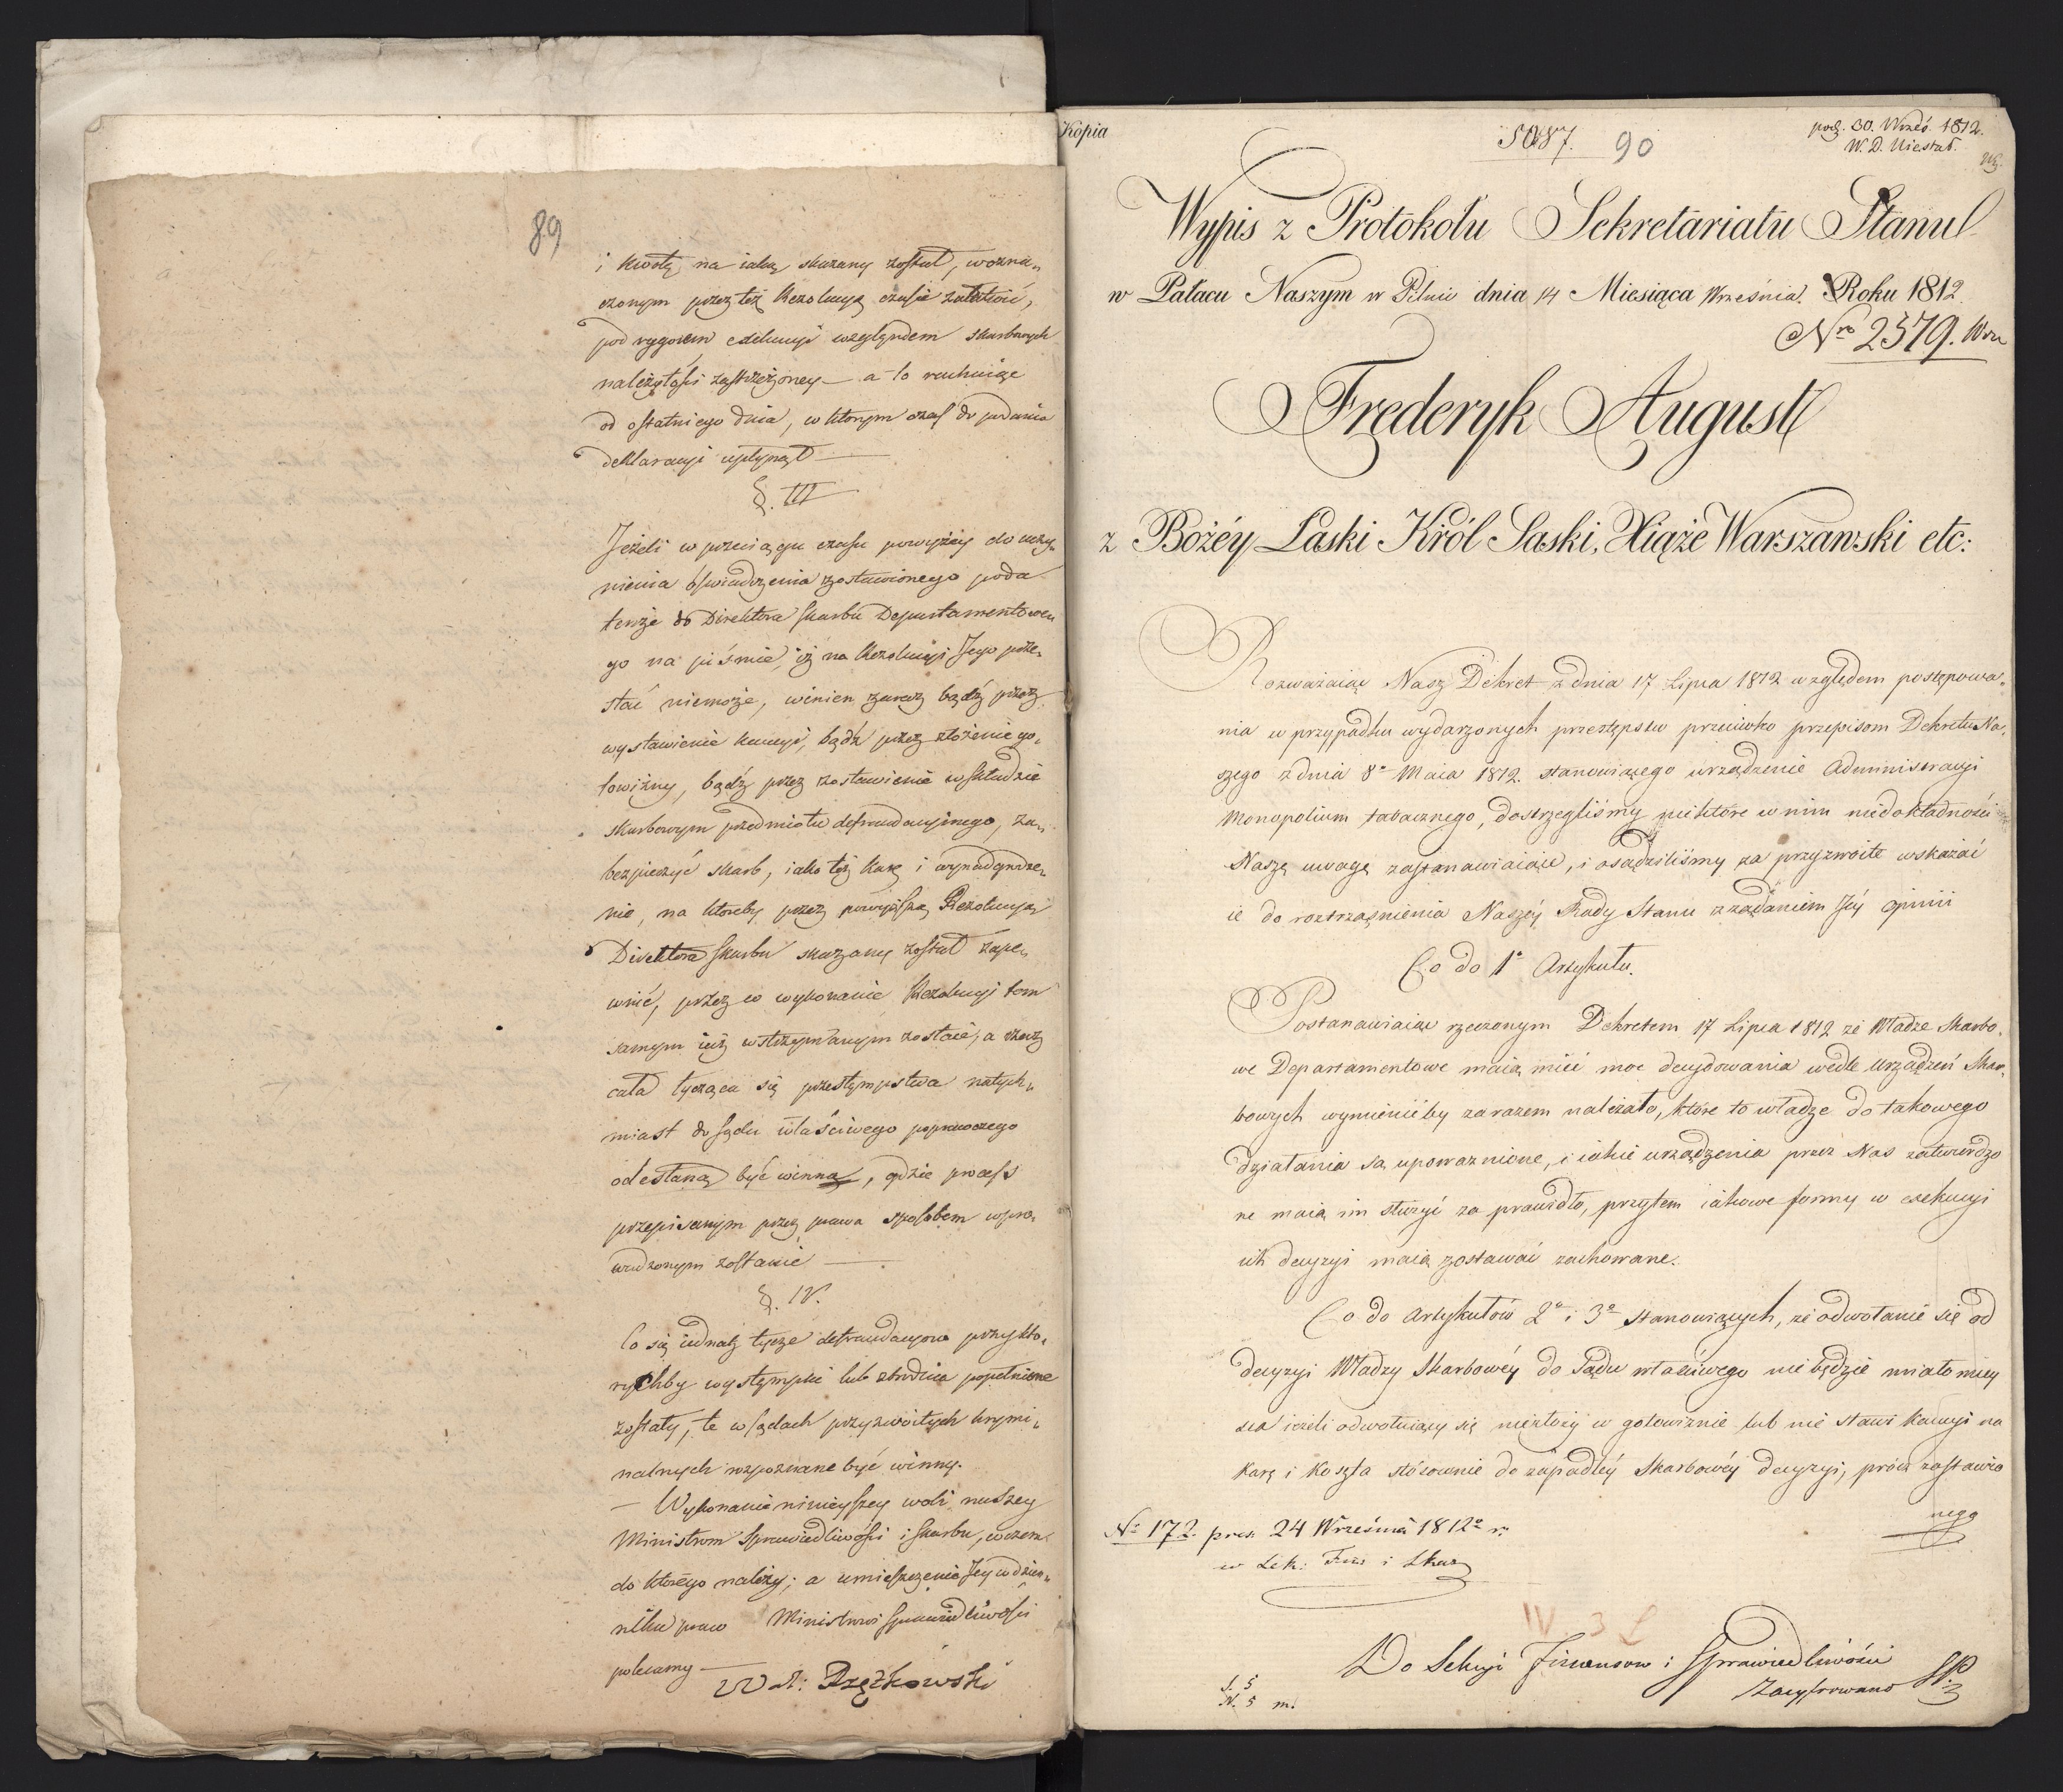 89
i kwotę na iaką skazany został, wozna„
czonym przez też Rezolucyą czasie załatwić,
pod rygorem exekucyi względem skarbowych
należytości zastrzeżoney — a to rachuiąc
od ostatniego dnia, w którym czas do podania
deklaracyi upłynął —
§. III
Jeżeli w przeciągu czasu powyżey do uczy„
nienia oświadczenia zostawionego poda
tenże do Direktora Skarbu Departamentowe„
go na piśmie, iż na Rezolucyi Jego prze„
stać niemoże, winien zaraz bądź przez
wystawienie kaucyi, bądź przez złożenie go„
towizny, bądź przez zostawienie w składzie
skarbowym przedmiotu defraudacyinego, za„
bezpieczyć skarb, iako też karę i wynadgrodze„
nie, na któreby przez powyższą Rezolucyą
Direktora Skarbu skazany został zape„
wnić, przez co wykonanie Rezolucyi tem
samym iuż wstrzymanym zostaie, a rzecz
cała tycząca się przestępstwa natych„
miast do Sądu właściwego poprawczego
odesłaną być winna, gdzie process
przepisanym przez prawa sposobem wpro„
wadzonym zostanie —
§. IV.
Co się iednak tycze defraudacyow przy któ„
rychby występki lub zbrodnia popełnione
zostały, te w Sądach przyzwoitych krymi„
nalnych rozpoznane być winny.
— Wykonanie ninieyszey woli naszey
Ministrom Sprawiedliwości i Skarbu, w czem
do którego należy; a umieszczenie Jey w dzien„
niku praw Ministrowi Sprawiedliwości
polecamy —
Rzążkowski
Kopia
5087. 90
pod. 30. Wrześ. 1812.
W. D. Niestab.
Wypis z Protokołu Sekretariatu Stanu
w Pałacu Naszym w Pilnic dnia 14 Miesiąca Września. Roku 1812.
Nro 2579.
Frederyk August
z Bożéy Łaski Król Saski, Xiąże Warszawski etc:
Rozważaiąc Nasz Dekret z dnia 17 Lipca 1812 względem postępowa„
nia w przypadku wydarzonych przestępstw przeciwko przepisom Dekretu Na„
szego z dnia 8o Maia 1812. stanowiącego urządzenie Administracyi
Monopolium tabacznego, dostrzegliśmy niektóre w nim niedokładności
Naszą uwagę zastanawiaiące, i osądziliśmy za przyzwoite wskazać
ie do roztrząśnienia Naszéy Rady Stanu z żądaniem Jéy opinii
Co do 1o Artykułu.
Postanawiaiąc rzeczonym Dekretem 17 Lipca 1812 że Władze Skarbo„
we Departamentowe maią mieć moc decydowania wedle urządzeń Skar„
bowych wymienićby zarazem należało, które to władze do takowego
działania są upoważnione, i iakie urządzenia przez Nas zatwierdzo
ne maią im służyć za prawidło, przytem iakowe formy w exekucyi
ich decyzyi maią zostawać zachowane.
Co do Artykułów 2o i 3o stanowiących, że odwołanie się od
decyzyi Władzy Skarbowéy do Sądu właściwego nie będzie miało miey
sca ieżeli odwołuiący się niezłoży w gotowiznie lub nie stawi kaucyi na
karę i koszta stosownie do zapadłéy Skarbowéy decyzyi, prócz zostawio
nego
No 172. pres. 24 Września 1812o r.
w Sek: Fin: i Skar
IV. 3
Do Sekcyi Finansow i Sprawiedliwości
Zacyfrowano
S. 5
N. 5 m.